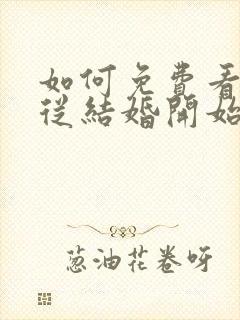 如何免費看
從結婚開始
葱油花卷呀